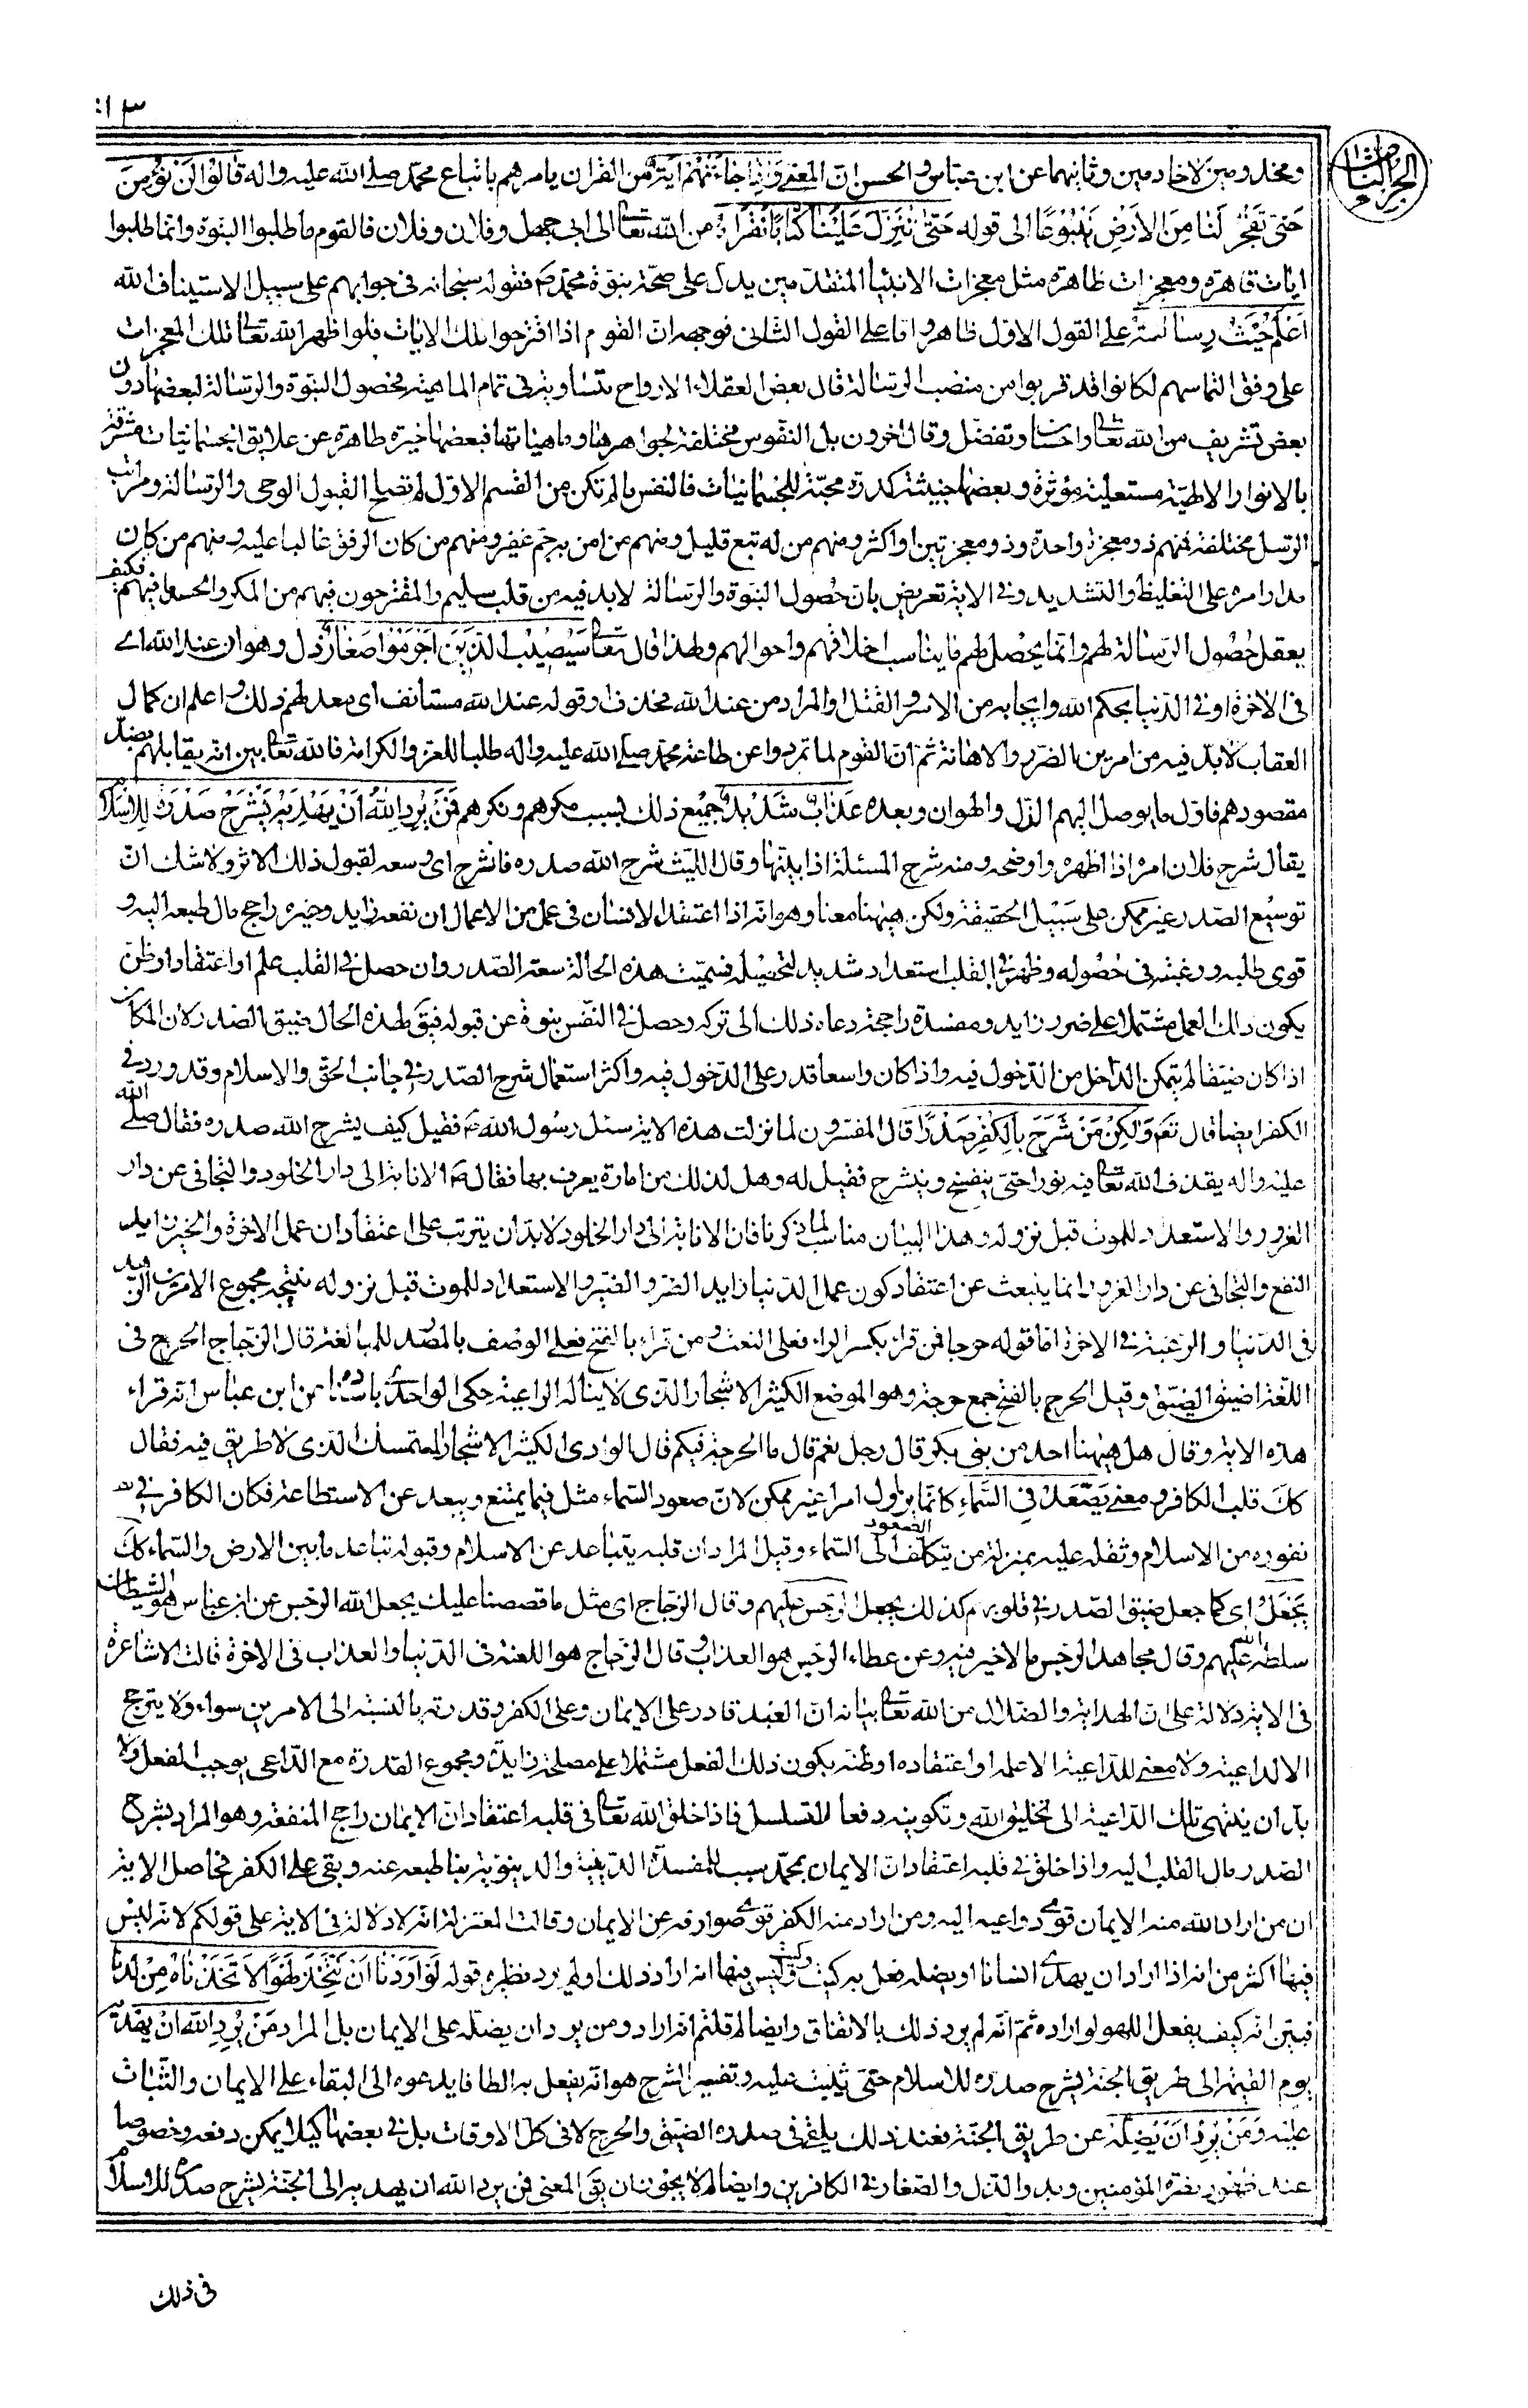 ١٣
الجزء الثامن
ومخدومين لا خادمين وثانيهما عن ابن عباس والحسن ان المعنى واذا جاءتهم اية من القران يامرهم باتباع محمد صلى الله عليه واله قالوا لن نؤمن
حتى تفجر لنا من الارض ينبوعا الى قوله حتى تنزل علينا كتابا نقراه من الله تعالى الى ابى جهل وفلان وفلان فالقوم ما طلبوا النبوة وانما طلبوا
ايات قاهرة ومعجزات ظاهرة مثل معجزات الانبياء المتقدمين يدل على صحة نبوة محمد ص فقوله سبحانه فى جوابهم على سبيل الاستيناف الله
اعلم حيث رسالته على القول الاول ظاهر واما على القول الثانى فوجهه ان القوم اذا اقترحوا تلك الايات فلو اظهر الله تعالى تلك المعجزات
على وفق التماسهم لكانوا قد قربوا من منصب الرسالة قال بعض العقلاء الارواح متساوية فى تمام الماهية فحصول النبوة والرسالة لبعضها دون
بعض تشريف من الله تعالى واحسان وتفضل وقال اخرون بل النفوس مختلفة لجواهرها وماهياتها فبعضها خيرة طاهرة عن علايق الجسمانيات مشرقة
بالانوار الالهية مستعلية مؤثرة وبعضها خبيثة كدرة محبة للجسمانيات فالنفس ما لم تكن من القسم الاول لم تصلح القبول الوحى والرسالة ومراتب
الرسل مختلفة فمنهم ذو معجزة واحدة وذو معجزتين او اكثر ومنهم من له تبع قليل ومنهم من امن به جم غفير ومنهم من كان الرفق غالبا عليه ومنهم من كان
مدار امره على التغليظ والتشديد وفى الاية تعريض بان حصول النبوة والرسالة لابد فيه من قلب سليم والمقترحون فيهم من المكر والحسد ما فيهم فكيف
يعقل حصول الرسالة لهم وانما يحصل لهم ما يناسب اخلاقهم واحوالهم ولهذا قال تعالى سيصيب الذين اجرموا صغار ذل وهوان عند الله اى
فى الاخرة او فى الدنيا بحكم الله وايجابه من الاسر والقتل او المراد من عند الله فحذف او قوله عند الله مستانف اى معد لهم ذلك واعلم ان كمال
العقاب لابد فيه من امرين الضرر والاهانة ثم ان القوم لما تمردوا عن طاعة محمد صلى الله عليه واله طلبا للعز والكرامة فالله تعالى بين انه يقابلهم بضد
مقصودهم فاول ما يوصل اليهم الذل والهوان وبعده عذاب شديد جميع ذلك بسبب مكرهم ونكرهم فمن يرد الله ان يهديه يشرح صدره للاسلام
يقال شرح فلان امره اذا اظهره واوضحه ومنه شرح المسئلة اذا بينها وقال الليث شرح الله صدره فانشرح اى وسعه لقبول ذلك الاثر ولا شك ان
توسيع الصدر غير ممكن على سبيل الحقيقة ولكن هيهنا معنا وهو انه اذا اعتقد الانسان فى عمل من الاعمال ان نفعه زايد وخيره راجح مال طبعه اليه و
قوى طلبه ورغبته فى حصوله وظهر فى القلب استعداد شديد لتحصيله فسميت هذه الحالة سعة الصدر وان حصل فى القلب علم او اعتقاد او ظن
يكون ذلك العمل مشتملا على ضرر زايد ومفسدة راجحة دعاه ذلك الى تركه وحصل فى النفس نبوة عن قبوله فيق لهذه الحال ضيق الصدر لان المكان
اذا كان ضيقا لم يتمكن الداخل من الدخول فيه واذا كان واسعا قدر على الدخول فيه واكثر استعمال شرح الصدر فى جانب الحق والاسلام وقد ورد فى
الكفر ايضا قال تعم ولكن من شرح بالكفر صدرا قال المفسرون لما نزلت هذه الاية سئل رسول الله ص فقيل كيف يشرح الله صدره فقال صلى الله
عليه واله يقذف الله تعالى فيه نورا حتى ينفسح وينشرح فقيل له وهل لذلك من امارة يعرف بها فقال ص الانابة الى دار الخلود والتجافى عن دار
الغرور والاستعداد للموت قبل نزوله وهذا البيان مناسب لما ذكرنا فان الانابة الى دار الخلود لابد ان يترتب على اعتقاد ان عمل الاخرة والخير زايد
النفع والتجافى عن دار الغرور انما ينبعث عن اعتقاد كون عمل الدنيا زايد الضر والضير والاستعداد للموت قبل نزوله نتيجة مجموع الامرين الزهد
فى الدنيا والرغبة فى الاخرة اما قوله حرجا فمن قرا بكسر الراء فعلى النعت ومن قراء بالفتح فعلى الوصف بالمصدر للمبالغة قال الزجاج الحرج فى
اللغة اضيق الضيق وقيل الحرج بالفتح جمع حرجة وهو الموضع الكثير الاشجار الذى لا يناله الراعية حكى الواحدى باسناده عن ابن عباس انه قراء
هذه الاية وقال هل هيهنا احد من بنى بكر قال رجل نعم قال ما الحرجة فيكم قال الوادى الكثير الاشجار المتمسك الذى لا طريق فيه فقال
كك قلب الكافر ومعنى يصعد فى السماء كانما يزاول امرا غير ممكن لان صعود السماء مثل فيما يمتنع ويبعد عن الاستطاعة فكان الكافر فى
نفوره من الاسلام وثقله عليه بمنزلة من يتكلف الصعود الى السماء وقيل المراد ان قلبه يتباعد عن الاسلام وقبوله تباعد ما بين الارض والسماء كك
يجعل اى كما جعل ضيق الصدر فى قلوبهم كذلك يجعل الرجس عليهم وقال الزجاج اى مثل ما قصصنا عليك يجعل الله الرجس عن ابن عباس هو الشيطان
سلطه الله عليهم وقال مجاهد الرجس ما لا خير فيه وعن عطاء الرجس هو العذاب وقال الزجاج هو اللعنة فى الدنيا والعذاب فى الاخرة قالت الاشاعرة
فى الاية دلالة على ان الهداية والضلال من الله تعالى بيانه ان العبد قادر على الايمان وعلى الكفر وقدرته بالنسبة الى الامرين سواء ولا يترجح
الا لداعية ولا معنى للداعية الا علمه او اعتقاده او ظنه بكون ذلك الفعل مشتملا على مصلحة زايدة ومجموع القدرة مع الداعى يوجب الفعل ولا
بد ان ينتهى تلك الداعية الى تخليق الله وتكوينه دفعا للتسلسل فاذا خلق الله تعالى فى قلبه اعتقاد ان الايمان راجح المنفعة وهو المراد بشرح
الصدر مال القلب اليه واذا خلق فى قلبه اعتقاد ان الايمان بمحمد سبب للمفسدة الدينية والدنيوية نبا طبعه عنه وبقى على الكفر فحاصل الاية
ان من اراد الله منه الايمان قوى دواعيه اليه ومن اراد منه الكفر قوى صوارفه عن الايمان وقالت المعتزلة انه لا دلالة فى الاية على قولكم لانه ليس
فيها اكثر من انه اذا اراد ان يهدى انسانا او يضله فعل به كيت وكيت وليس فيها انه اراد ذلك او لم يرد نظيره قوله لو اردنا ان نتخذ لهوا لاتخذناه من لدنا
فبين انه كيف يفعل اللهو لو اراده ثم انه لم يرد ذلك بالاتفاق وايضا لم قلتم انه اراد ومن يرد ان يضله على الايمان بل المراد من يرد الله ان يهديه
يوم القيمة الى طريق الجنة يشرح صدره للاسلام حتى تثبت عليه وتفسير الشرح هو انه يفعل به الطافا يدعوه الى البقاء على الايمان والثبات
عليه ومن يرد ان يضله عن طريق الجنة فعند ذلك يلقى فى صدره الضيق والحرج لا فى كل الاوقات بل فى بعضها كيلا يمكن دفعه وخصوصا
عند ظهور نصرة المؤمنين وبدو الذل والصغار فى الكافرين وايضا لم لا يجوز ان يق المعنى فمن يرد الله ان يهديه الى الجنة يشرح صدره للاسلام
فى ذلك